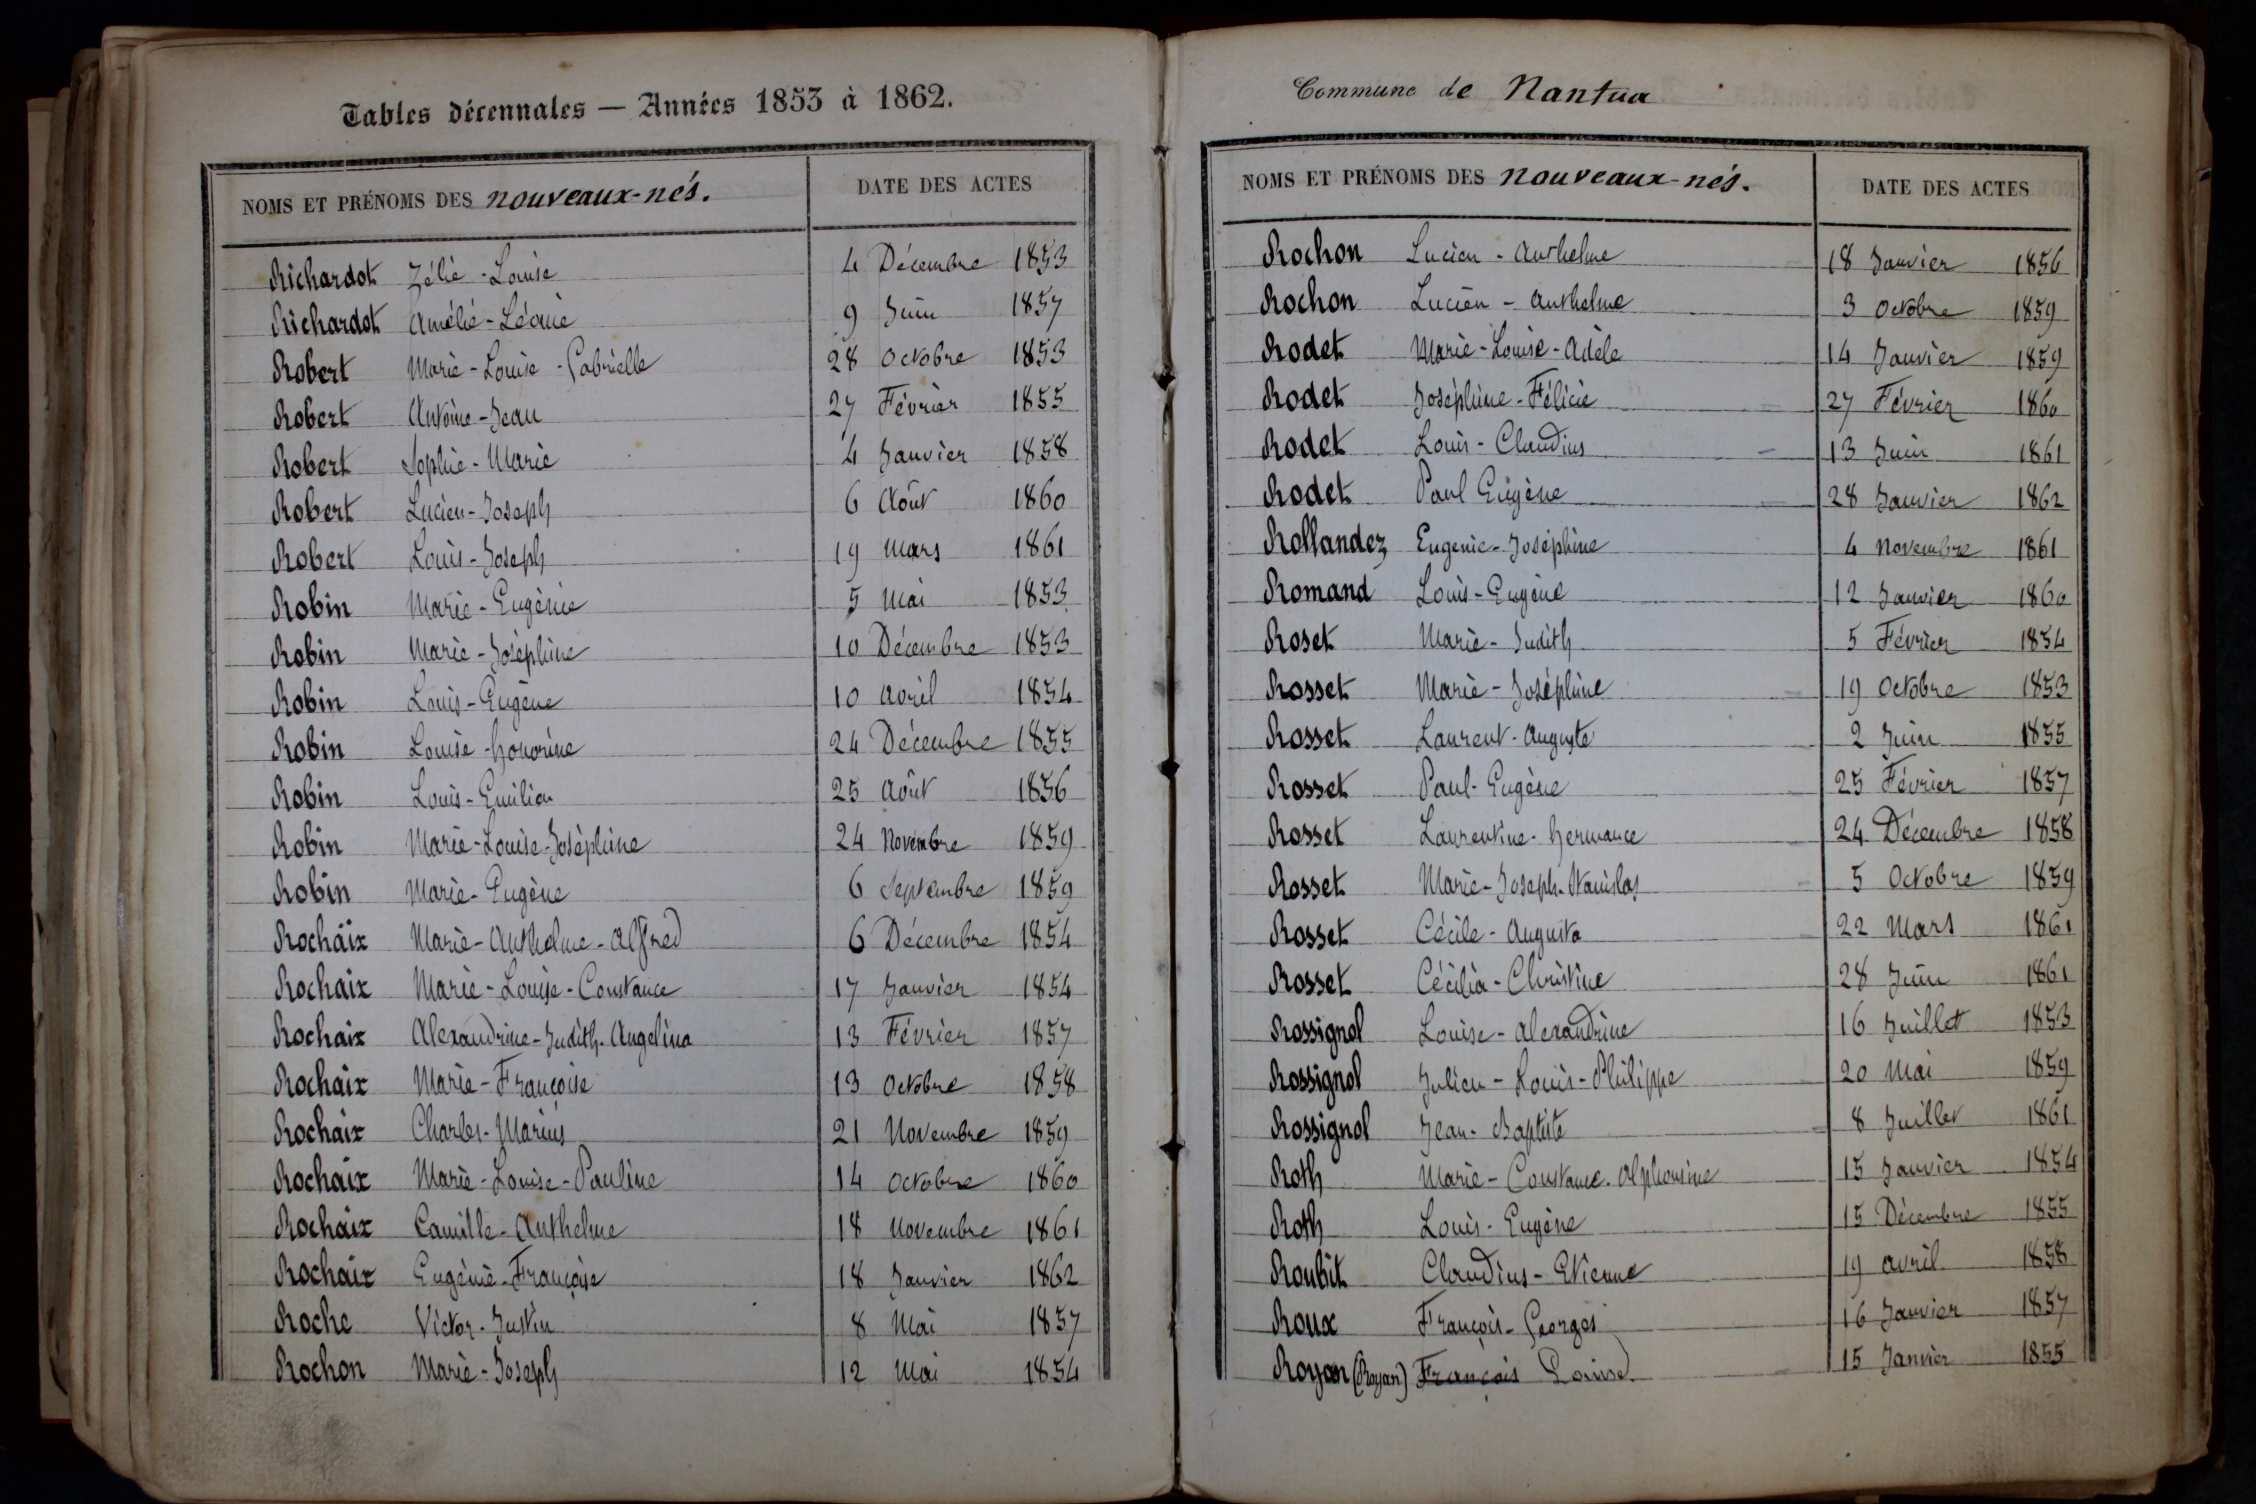 Tables décennales — Années 1853 à 1862.
NOMS ET PRÉNOMS DES nouveaux-nés. DATE DES ACTES
Richardot Zélie-Louise 4 Décembre 1853
Richardot Amélie-Léonie 9 Juin 1857
Robert Marie-Louise-Gabrielle 28 Octobre 1853
Robert Antoine-Jean 27 Février 1855
Robert Sophie-Marie 4 Janvier 1858
Robert Lucien-Joseph 6 Août 1860
Robert Louis-Joseph 19 Mars 1861
Robin Marie-Eugénie 5 Mai 1853
Robin Marie-Joséphine 10 Décembre 1853
Robin Louis-Eugène 10 Avril 1854
Robin Louise-honorine 24 Décembre 1855
Robin Louis-Emilien 25 Août 1856
Robin Marie-Louise-Joséphine 24 Novembre 1859
Robin Marie-Eugène 6 Septembre 1859
Rochaix Marie-Anthelme-Alfred 6 Décembre 1854
Rochaix Marie-Louise-Constance 17 Janvier 1854
Rochaix Alexandrine-Judith-Angelina 13 Février 1857
Rochaix Marie-Françoise 13 Octobre 1858
Rochaix Charles-Marius 21 Novembre 1859
Rochaix Marie-Louise-Pauline 14 Octobre 1860
Rochaix Camille-Anthelme 18 Novembre 1861
Rochaix Eugénie-Françoise 18 Janvier 1862
Roche Victor-Justin 8 Mai 1857
Rochon Marie-Joseph 12 Mai 1854
Commune de Nantua
NOMS ET PRÉNOMS DES nouveaux-nés. DATE DES ACTES
Rochon Lucien-Anthelme 18 Janvier 1856
Rochon Lucien-Anthelme 3 Octobre 1859
Rodet Marie-Louise-Adèle 14 Janvier 1859
Rodet Joséphine-Félicie 27 Février 1860
Rodet Louis-Claudius 13 Juin 1861
Rodet Paul Eugène 28 Janvier 1862
Rollandez Eugenie-Joséphine 4 Novembre 1861
Romand Louis-Eugène 12 Janvier 1860
Roset Marie-Judith 5 Février 1854
Rosset Marie-Joséphine 19 Octobre 1853
Rosset Laurent-Auguste 2 Juin 1855
Rosset Paul-Eugène 25 Février 1857
Rosset Laurentine-hermance 24 Décembre 1858
Rosset Marie-Joseph-Stanislas 5 Octobre 1859
Rosset Cécile-Augusta 22 Mars 1861
Rosset Cécilia-Christine 28 Juin 1861
Rossignol Louise-Alexandrine 16 Juillet 1853
Rossignol Julien-Louis-Philippe 20 Mai 1859
Rossignol Jean-Baptiste 8 Juillet 1861
Roth Marie-Constance-Alphonsine 15 Janvier 1854
Roth Louis-Eugène 15 Décembre 1855
Roubit Claudius-Etienne 19 Avril 1858
Roux François-Georges 16 Janvier 1857
Royon (Royan) François Louise 15 Janvier 1855